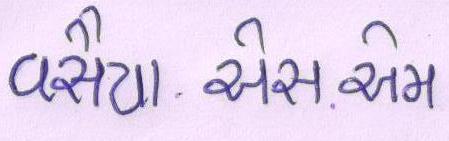 વસૈયા. એસ.એમ